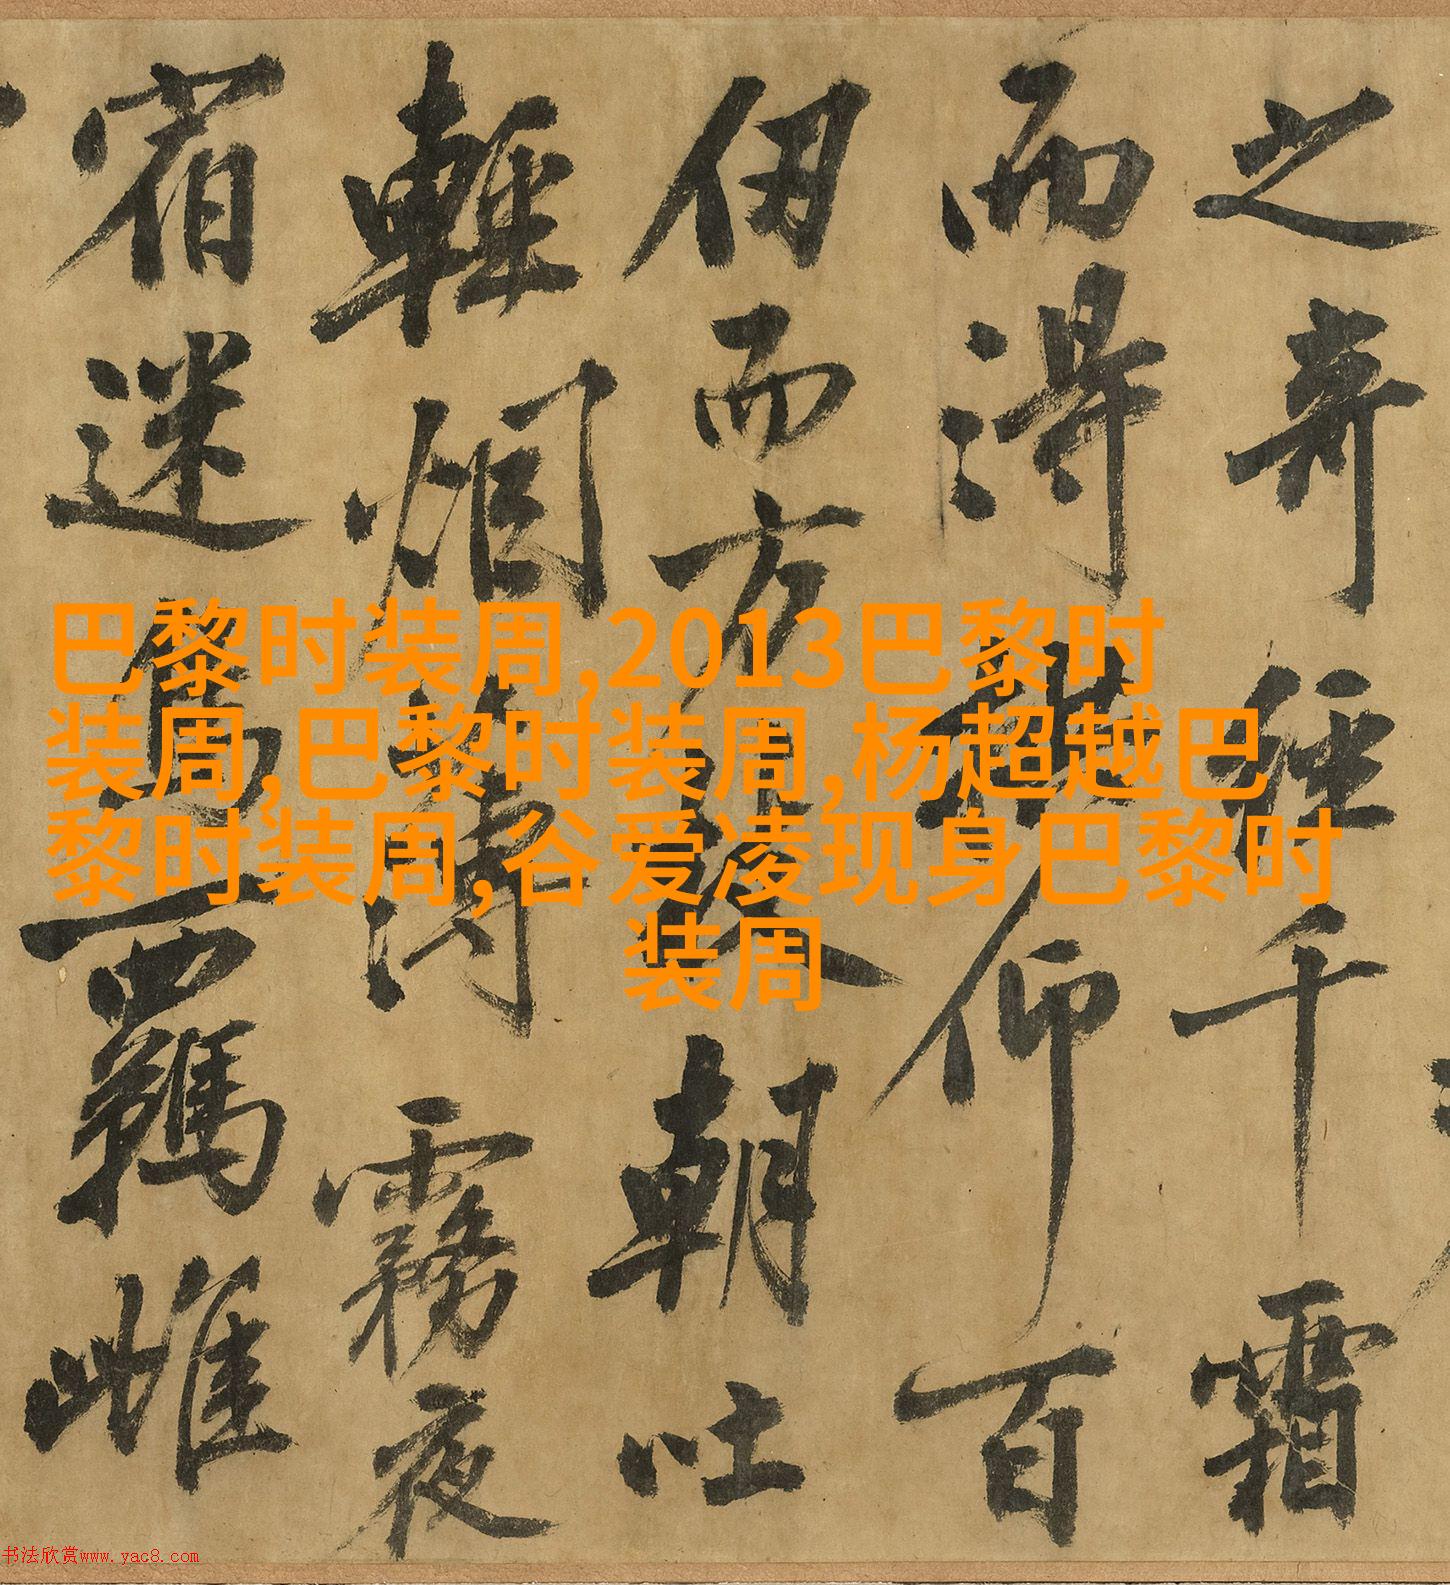 之奇經千霜
而得拱仰百
仞而方枝朝吐
輕煙薄霧夜
宿迷鳥羈雌
巴黎时装周,2013巴黎时
装周,巴黎时装周,杨超越巴
黎时装周,谷爱凌现身巴黎时
装周
书法欣赏www.yac8.com